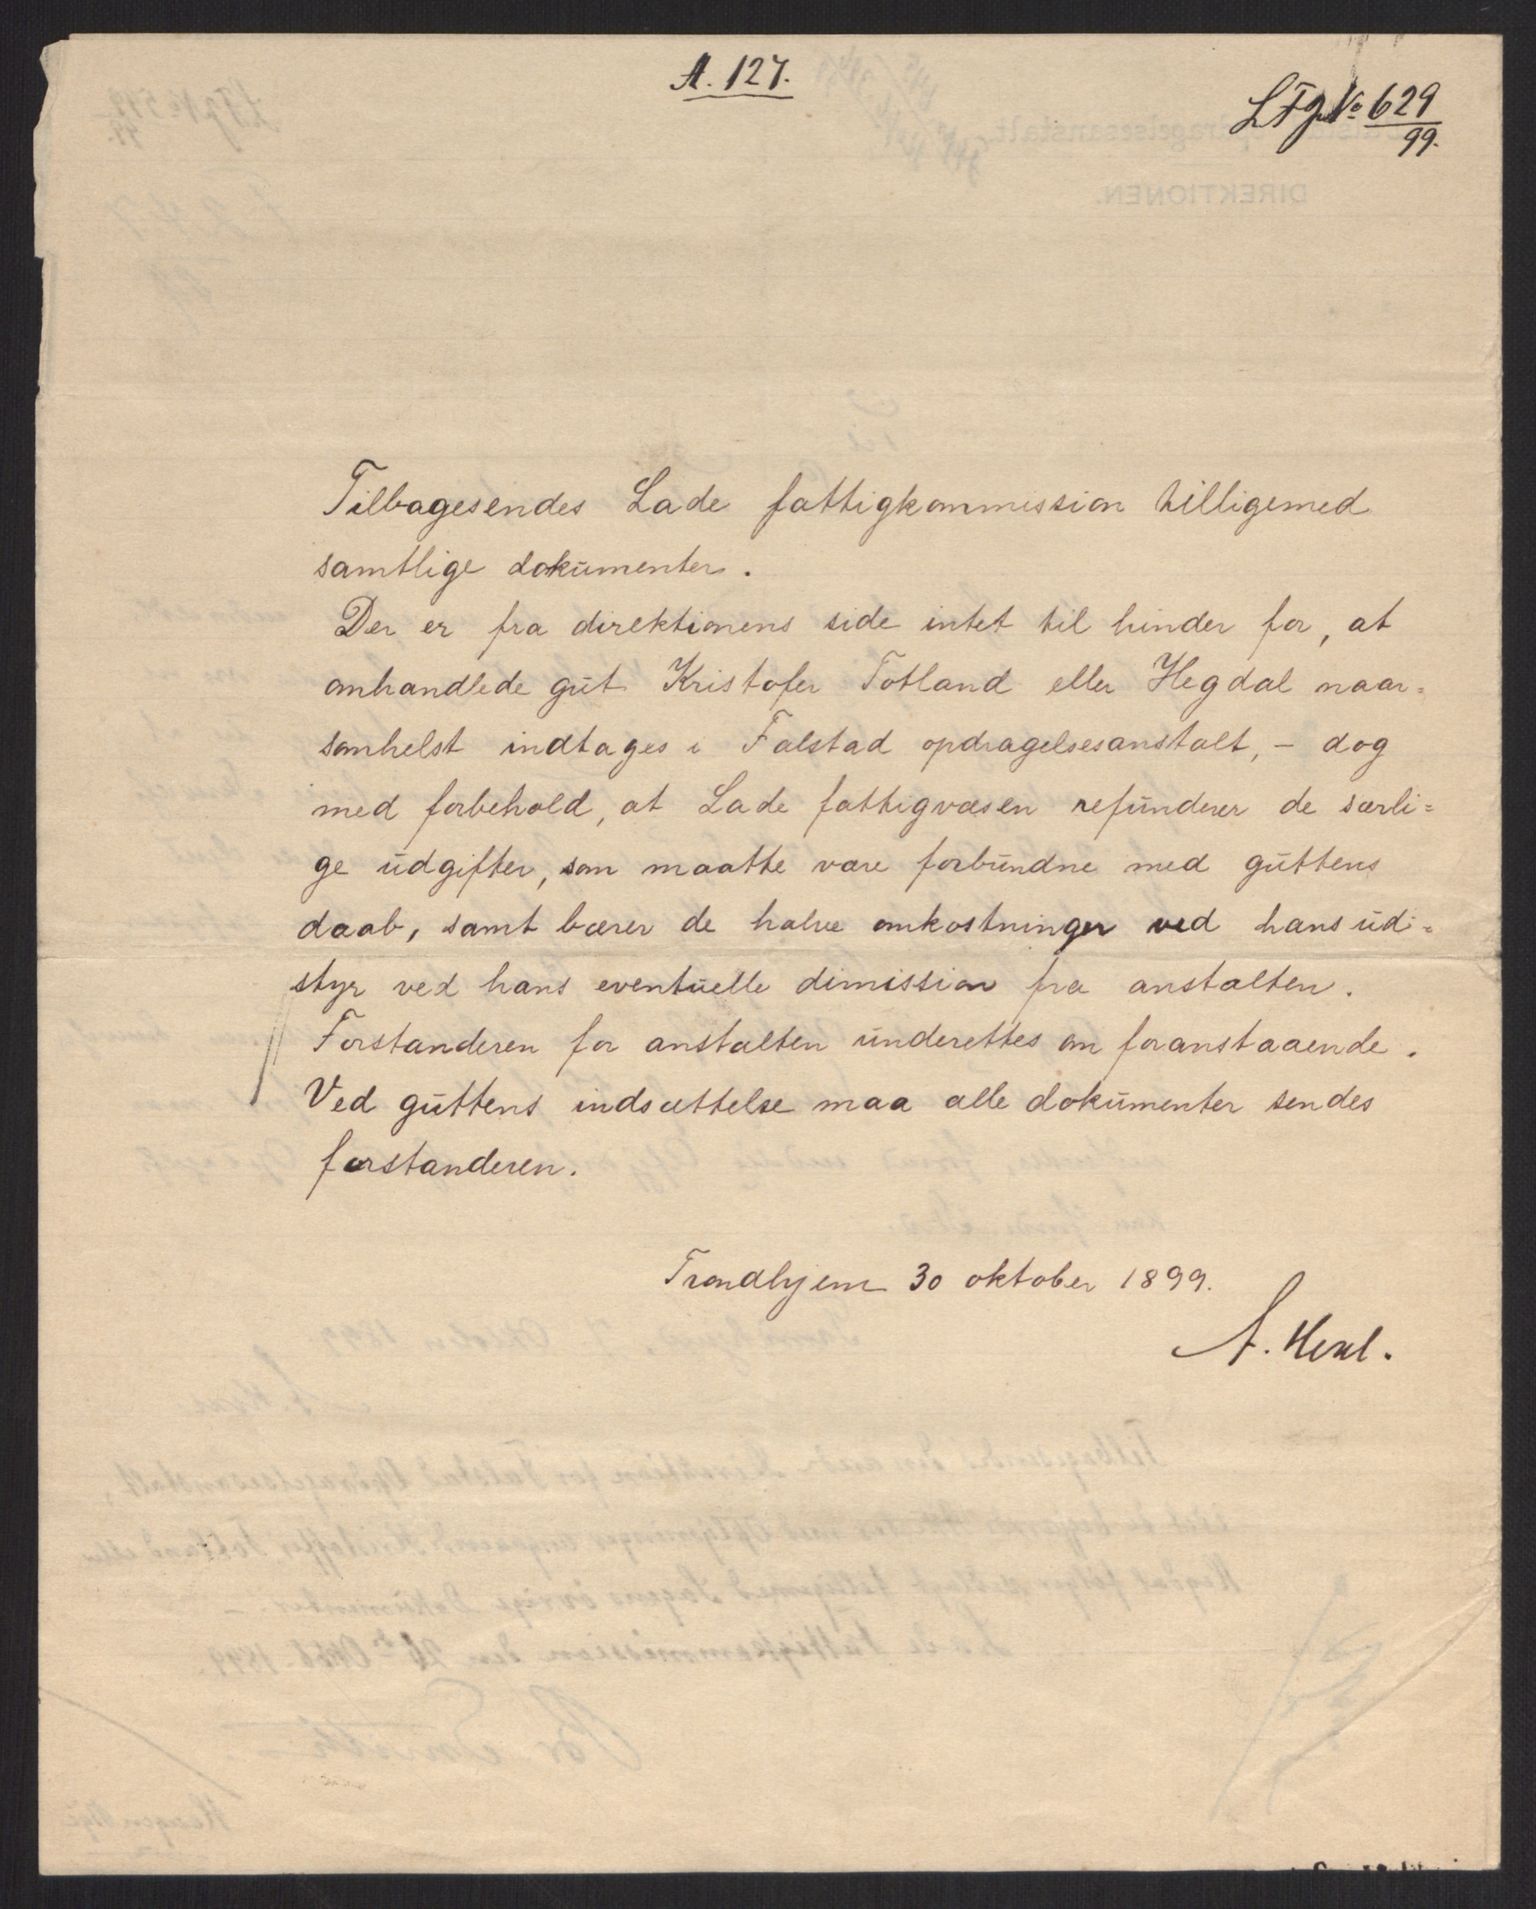 A. 127.
LFg No 629
99.
Tilbagesendes Lade fattigkommission tilligemed
samtlige dokumenter.
Der er fra direktionens side intet til hinder for, at
omhandlede gut Kristofer Totland eller Hegdal naar=
somhelst indtages i Falstad opdragelsesanstalt, - dog
med forbehold, at Lade fattigvæsen refunderer de særli=
ge udgifter, som maatte være forbundne med guttens
daab, samt bærer de halve omkostninger ved hans ud=
styr ved hans eventuelle dimission fra anstalten.
Forstanderen for anstalten underettes om foranstaaende.
Ved guttens indsættelse maa alle dokumenter sendes
forstanderen.
Trondhjem 30 oktober 1899.
A.
DIREKTIONEN.